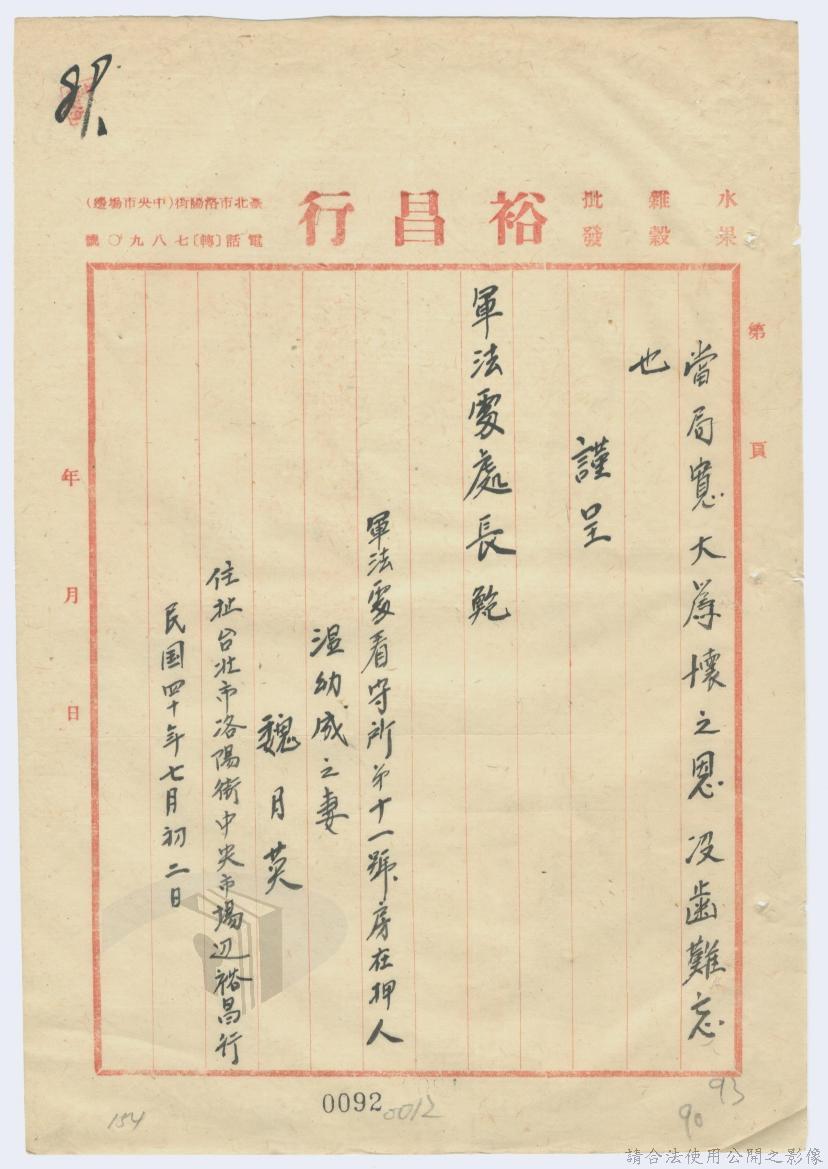 水果
雜穀
批發
裕昌行
臺北市洛陽街(中央市場邊)
電話〔轉〕七八九〇號
第 頁
當局寬大為懷之恩沒齒難忘
也
謹呈
軍法處處長鮑
軍法處看守所第十一號房在押人
溫幼成之妻
魏月英
住址台北市洛陽街中央市場辺裕昌行
民国四十年七月初二日
年 月 日
0092
0012
93
90
154
請合法使用公開之影像